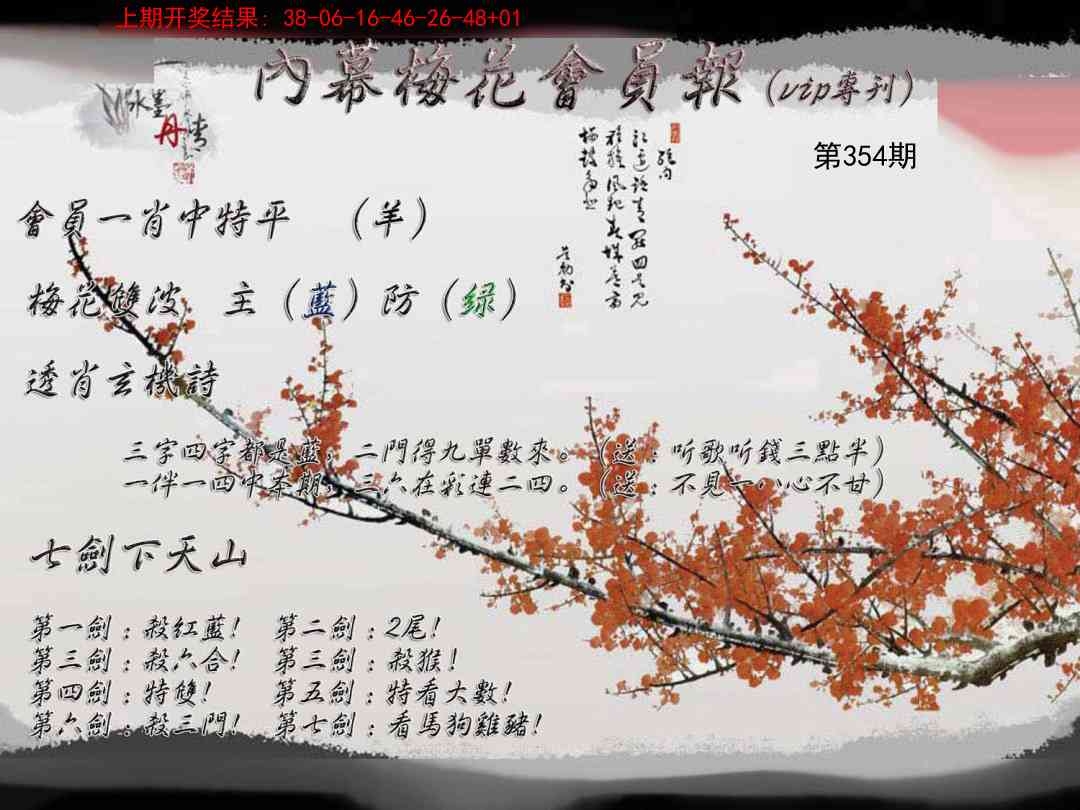 上期开奖结果: 38-06-16-46-26-48+01
內幕梅花會員報(vip專刊)
水墨
丹青
第354期
會員一肖中特平 (羊)
梅花雙波 主(藍)防(绿)
透肖玄機詩
三字四字都是藍,二門得九單數來。(送:听歌听錢三點半)
一伴一四中本期,三六在彩連二四。(送:不見一八心不甘)
七劍下天山
第一劍:殺红藍! 第二劍:2尾!
第三劍:殺六合! 第三劍:殺猴!
第四劍:特雙! 第五劍:特看大數!
第六劍:殺三門! 第七劍:看馬狗雞豬!